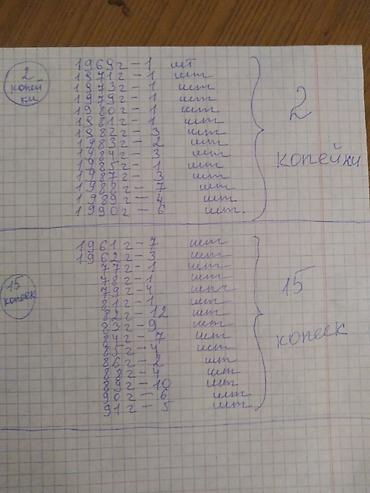 2 копейки
1969г-1 шт
1971г-1 шт
1973г-1 шт
1979г-1 шт
1980г-1 шт
1981г-1 шт
1982г-3 шт
1983г-2 шт
1984г-3 шт
1985г-1 шт
1987г-3 шт
1988г-7 шт
1989г-4 шт
1990г-6 шт.
2 копейки
15 копеек
1961г-7 шт
1962г-3 шт
77г-1 шт
78г-1 шт
79г-4 шт
81г-1 шт
82г-12 шт
83г-9 шт
84г-7 шт
85г-4 шт
86г-2 шт
88г-4 шт
89г-10 шт
90г-6 шт
91г-5 шт
15 копеек